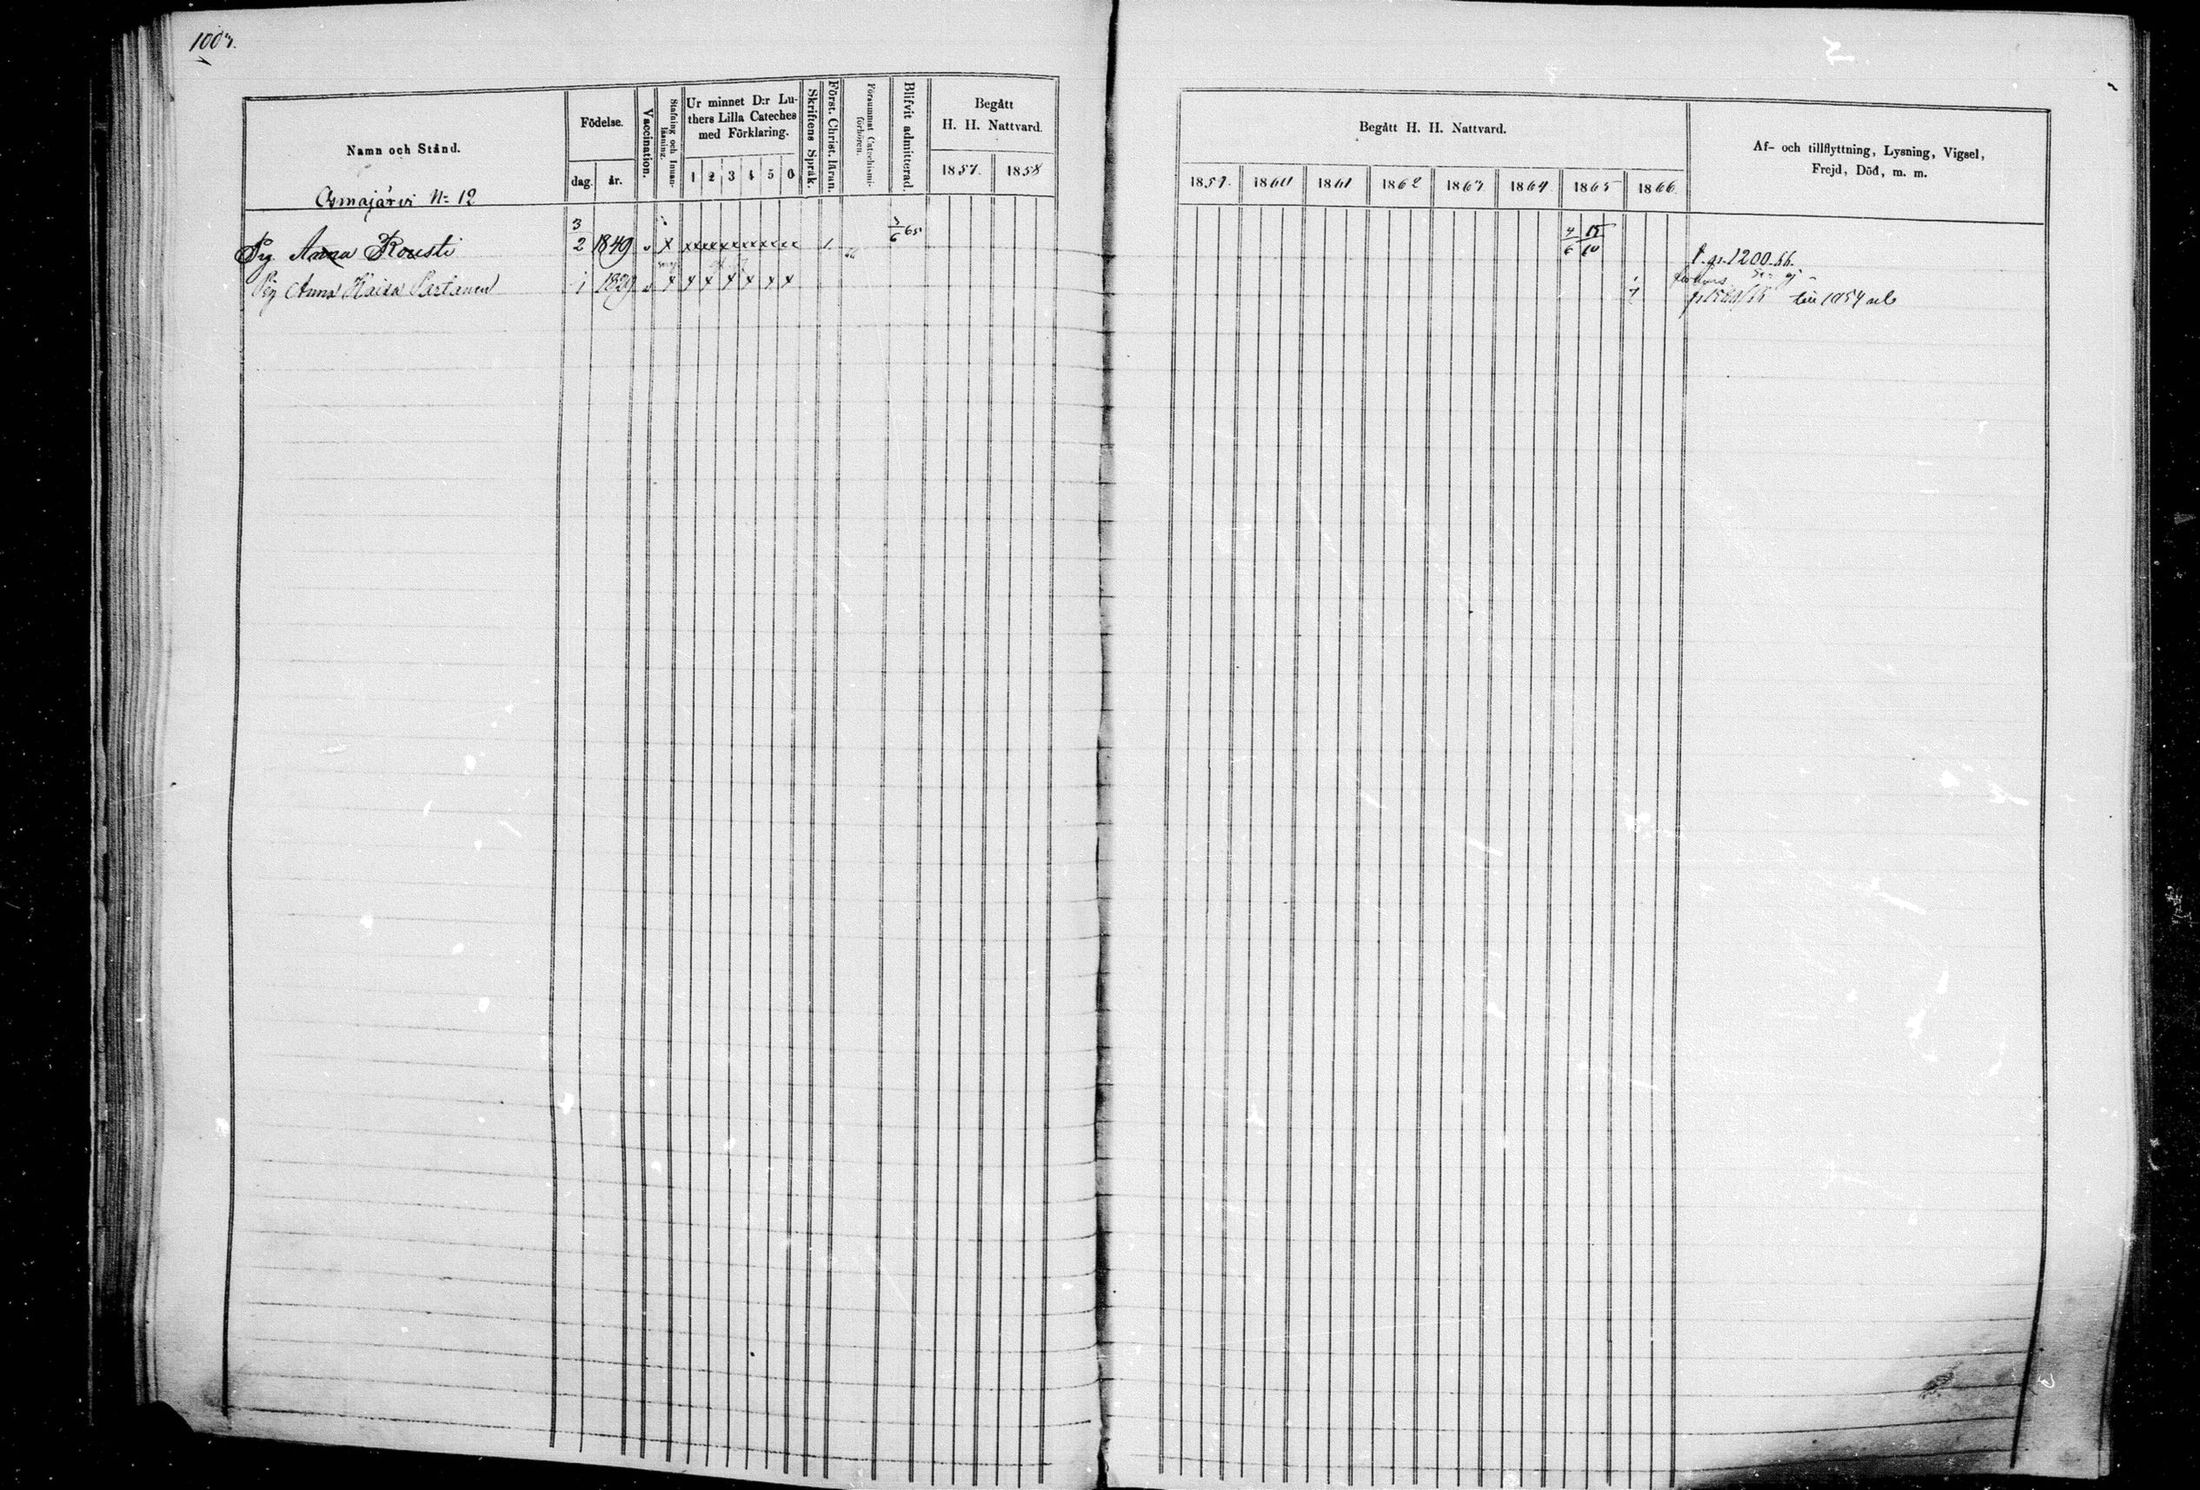 1003.
Namn och Stånd.
Födelse.
dag. år.
Vaccination.
Stafning och Innan-
läsning.
Ur minnet D:r Lu-
thers Lilla Cateches
med Förklaring.
1 2 3 4 5 6
Skriftens Språk.
Först. Christ. läran.
Försummat Catechismi-
förhören.
Blifvit admitterad
Begått
H. H. Nattvard.
1857. 1858
Osmajärvi N= 12
Pig Anna Rousti 3/2 1849 v x xxxxxxxxxx 1 3/6 65
Pig Anna Kaisa Partanen 1 1829 v x x x x x x x
Begått H. H. Nattvard.
1859. 1860 1861 1862 1863 1864 1865 1866
Af- och tillflyttning, Lysning, Vigsel,
Frejd, Död, m. m.
4/6 15/10
1200. 66.
1
7
1054